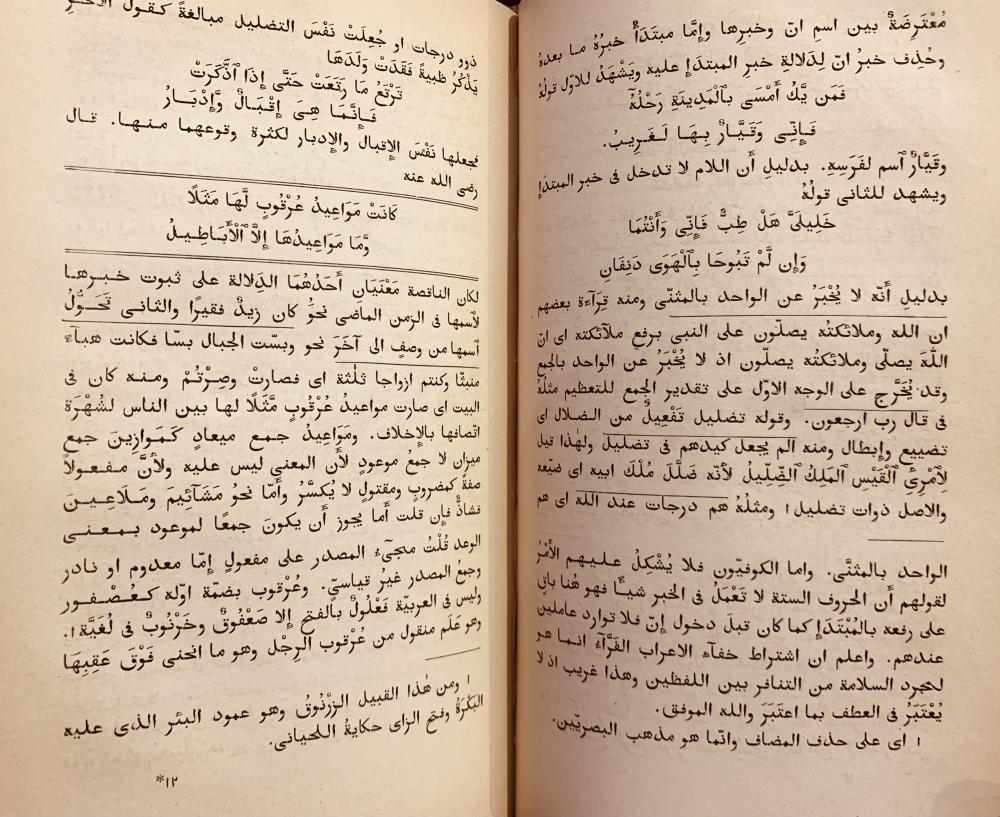 مُعْتَرِضَةٌ بين اسمِ انّ وخبرِها وإمَّا مبتدَأٌ خبرُهُ ما بعده
وحُذِف خبرُ انّ لِدَلالةِ خبرِ المبتدإ عليه ويَشْهَدُ للاوّل قولُهُ
فَمَن يَّكُ أَمْسَى بِٱلْمَدِينَةِ رَحْلُهُ
فَإِنِّى وَقَيَّارٌ بِهَا لَغَرِيبُ.
وقَيَّارٌ ٱسم لفَرَسِهِ. بدليلِ أن اللام لا تدخل فى خبر المبتدَإ
ويشهد للثانى قولُهُ
خَلِيلَىَّ هَلْ طِبٌّ فَإِنِّى وَأَنْتُمَا
وَإِن لَّمْ تَبُوحَا بِٱلْهَوَى دَنِفَانِ
بدليلِ أنّه لا يُخْبَرُ عن الواحد بالمثنّى ومنه قِرآءة بعضهم
ان الله وملائكتُه يصلّون على النبى برفع ملآئكته اى انّ
اللّهَ يصلّى وملائكتُه يصلّون اذ لا يُخْبَرُ عن الواحد بالجمع
وقد يُخَرَّج على الوجه الاوّل على تقدير الجمع للتعظيم مثلُهُ
فى قال رب ارجعون. وقوله تضليل تَفْعِيلٌ من الضلال اى
تضييع وإبطال ومنه الم يجعل كيدهم فى تضليل ولهٰذا قيل
لِآمْرِئِ ٱلْقَيْسِ ٱلمَلِكُ ٱلضِّلِّيلُ لأنّه ضَلَّلَ مُلْكَ ابيه اى ضيّعه
والاصل ذوات تضليل١ ومثلُهُ هم درجات عند الله اى هم
الواحد بالمثنَّى. واما الكوفيّون فلا يُشْكِلُ عليهم الأَمْرُ
لقولهم أن الحروف الستة لا تَعْمَلُ فى الخبر شيئًا فهو هُنا باقٍ
على رفعه بالمُبْتَدَإِ كما كان قبلَ دخول إنّ فلا توارد عاملين
عندهم. واعلم ان اشتراط خفآء الاعراب الفَرَّآءُ انما هو
لمجرد السلامة من التنافر بين اللفظين وهذا غريب اذ لا
يُعْتَبَرُ فى العطف بما اعتَبَرَ والله الموفق.
١ اى على حذف المضاف وانّما هو مذهب البصريّين.
ذوو درجات او جُعِلَتْ نَفْسَ التضليل مبالغةً كقول الآخرِ
يَذْكُرُ ظبيةً فَقَدَتْ وَلَدَهَا
تَرْتَعُ مَا رَتَعَتْ حَتَّى إِذَا ٱدَّكَرَتْ
فَإِنَّمَا هِىَ إِقْبَالٌ وَّإِدْبَارُ
فجعلها نَفْسَ الإِقبال والإدبار لكثرة وقوعهما منها. قال
رضى الله عنه
كَانَتْ مَوَاعِيدُ عُرْقُوبٍ لَّهَا مَثَلًا
وَّمَا مَوَاعِيدُهَا إِلاَّ ٱلْأَبَاطِيلُ
لكان الناقصة مَعْنَيَانِ أَحَدُهُمَا الدِلالة على ثبوت خبرها
لاسمها فى الزمن الماضى نحوُ كان زيدٌ فقيرًا والثانى تَحَوُّلُ
ٱسمها من وصفٍ الى آخَرَ نحو وبسّت الجبال بسّا فكانت هبآء
منبثّا وكنتم ازواجا ثلٰثة اى فصارتْ وصِرْتُمْ ومنه كان فى
البيت اى صارت مواعيدُ عُرْقُوبٍ مَّثَلًا لها بين الناس لشُهْرَة
اتّصافها بالإِخلاف. ومَوَاعِيدُ جمع ميعادٍ كَمَوازِينَ جمع
ميزان لا جمعُ موعودٍ لأن المعنى ليس عليه ولأنَّ مفعولاً
صفةً كمضروبٍ ومقتولٍ لا يُكسَّرُ وأمّا نحوُ مَشَائِيمَ ومَلَاعِينَ
فشاذٌّ فإن قلت أما يجوز أن يكونَ جمعًا لموعود بمعنى
الوعد قُلْتُ مجىْءُ المصدر على مفعولٍ إمّا معدوم او نادر
وجمعُ المصدر غيرُ قياسىّ. وعُرْقوب بضمّة اوّله كعُصْفور
وليس فى العربيّة فَعْلُولٌ بالفتح إلا صَعْفُوقٌ وخَرْنُوبٌ فى لُغَيَّة١.
وهو عَلَم منقول من عُرْقوب الرِجْل وهو ما انحنى فَوْقَ عَقِبِهَا
١ ومن هٰذا القبيل الزَرْنُوقُ وهو عمود البئر الذى عليه
البَكْرَةُ وفتح الزاى حكايةُ اللحيانى.
١٢*